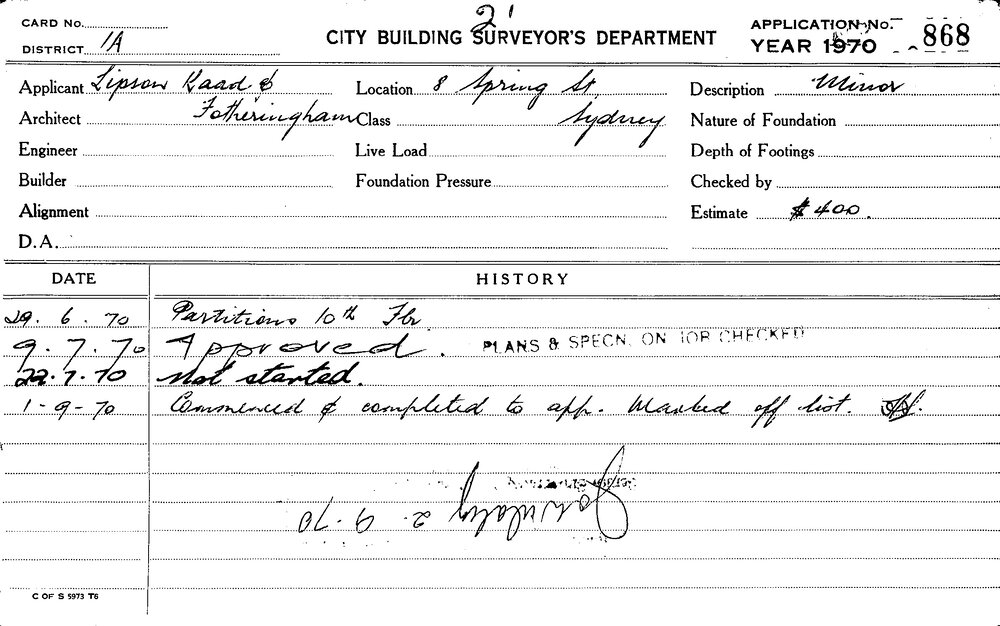 2'
CARD NO.
DISTRICT 1A
CITY BUILDING SURVEYOR'S DEPARTMENT
APPLICATION NO. 868
YEAR 1970
Applicant Lipson Kaad & Location 8 Spring St Description Minor
Architect Fotheringham Class Sydney Nature of Foundation
Engineer Live Load Depth of Footings
Builder Foundation Pressure Checked by
Alignment Estimate $400.
D.A.
DATE HISTORY
29.6.70 Partitions 10th Flr
9.7.70 Approved. PLANS & SPECN. ON JOB CHECKED
22.7.70 Not started.
1-9-70 Commenced & completed to app. Marked off list.
2.9.70
C OF S 5973 T6